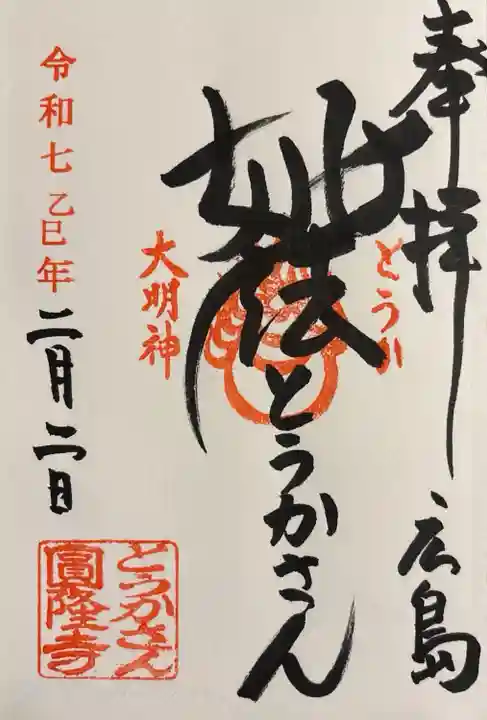 奉拝
広島
妙法
とうかさん
とうか
大明神
令和七乙巳年
二月二日
とうかさん
圓隆寺